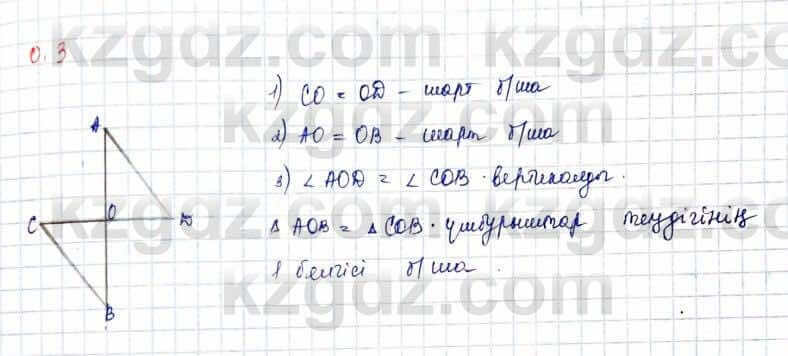 0.3
1) CO = OD - шарт б/ша
2) AO = OB - шарт б/ша
3) ∠ AOD = ∠ COB · вертикалды.
Δ AOB = Δ COB · үшбұрыштар теңдігінің
1 белгісі б/ша.
A
C O D
B
kzgdz.com
kzgdz.com
kzgdz.com
kzgdz.com